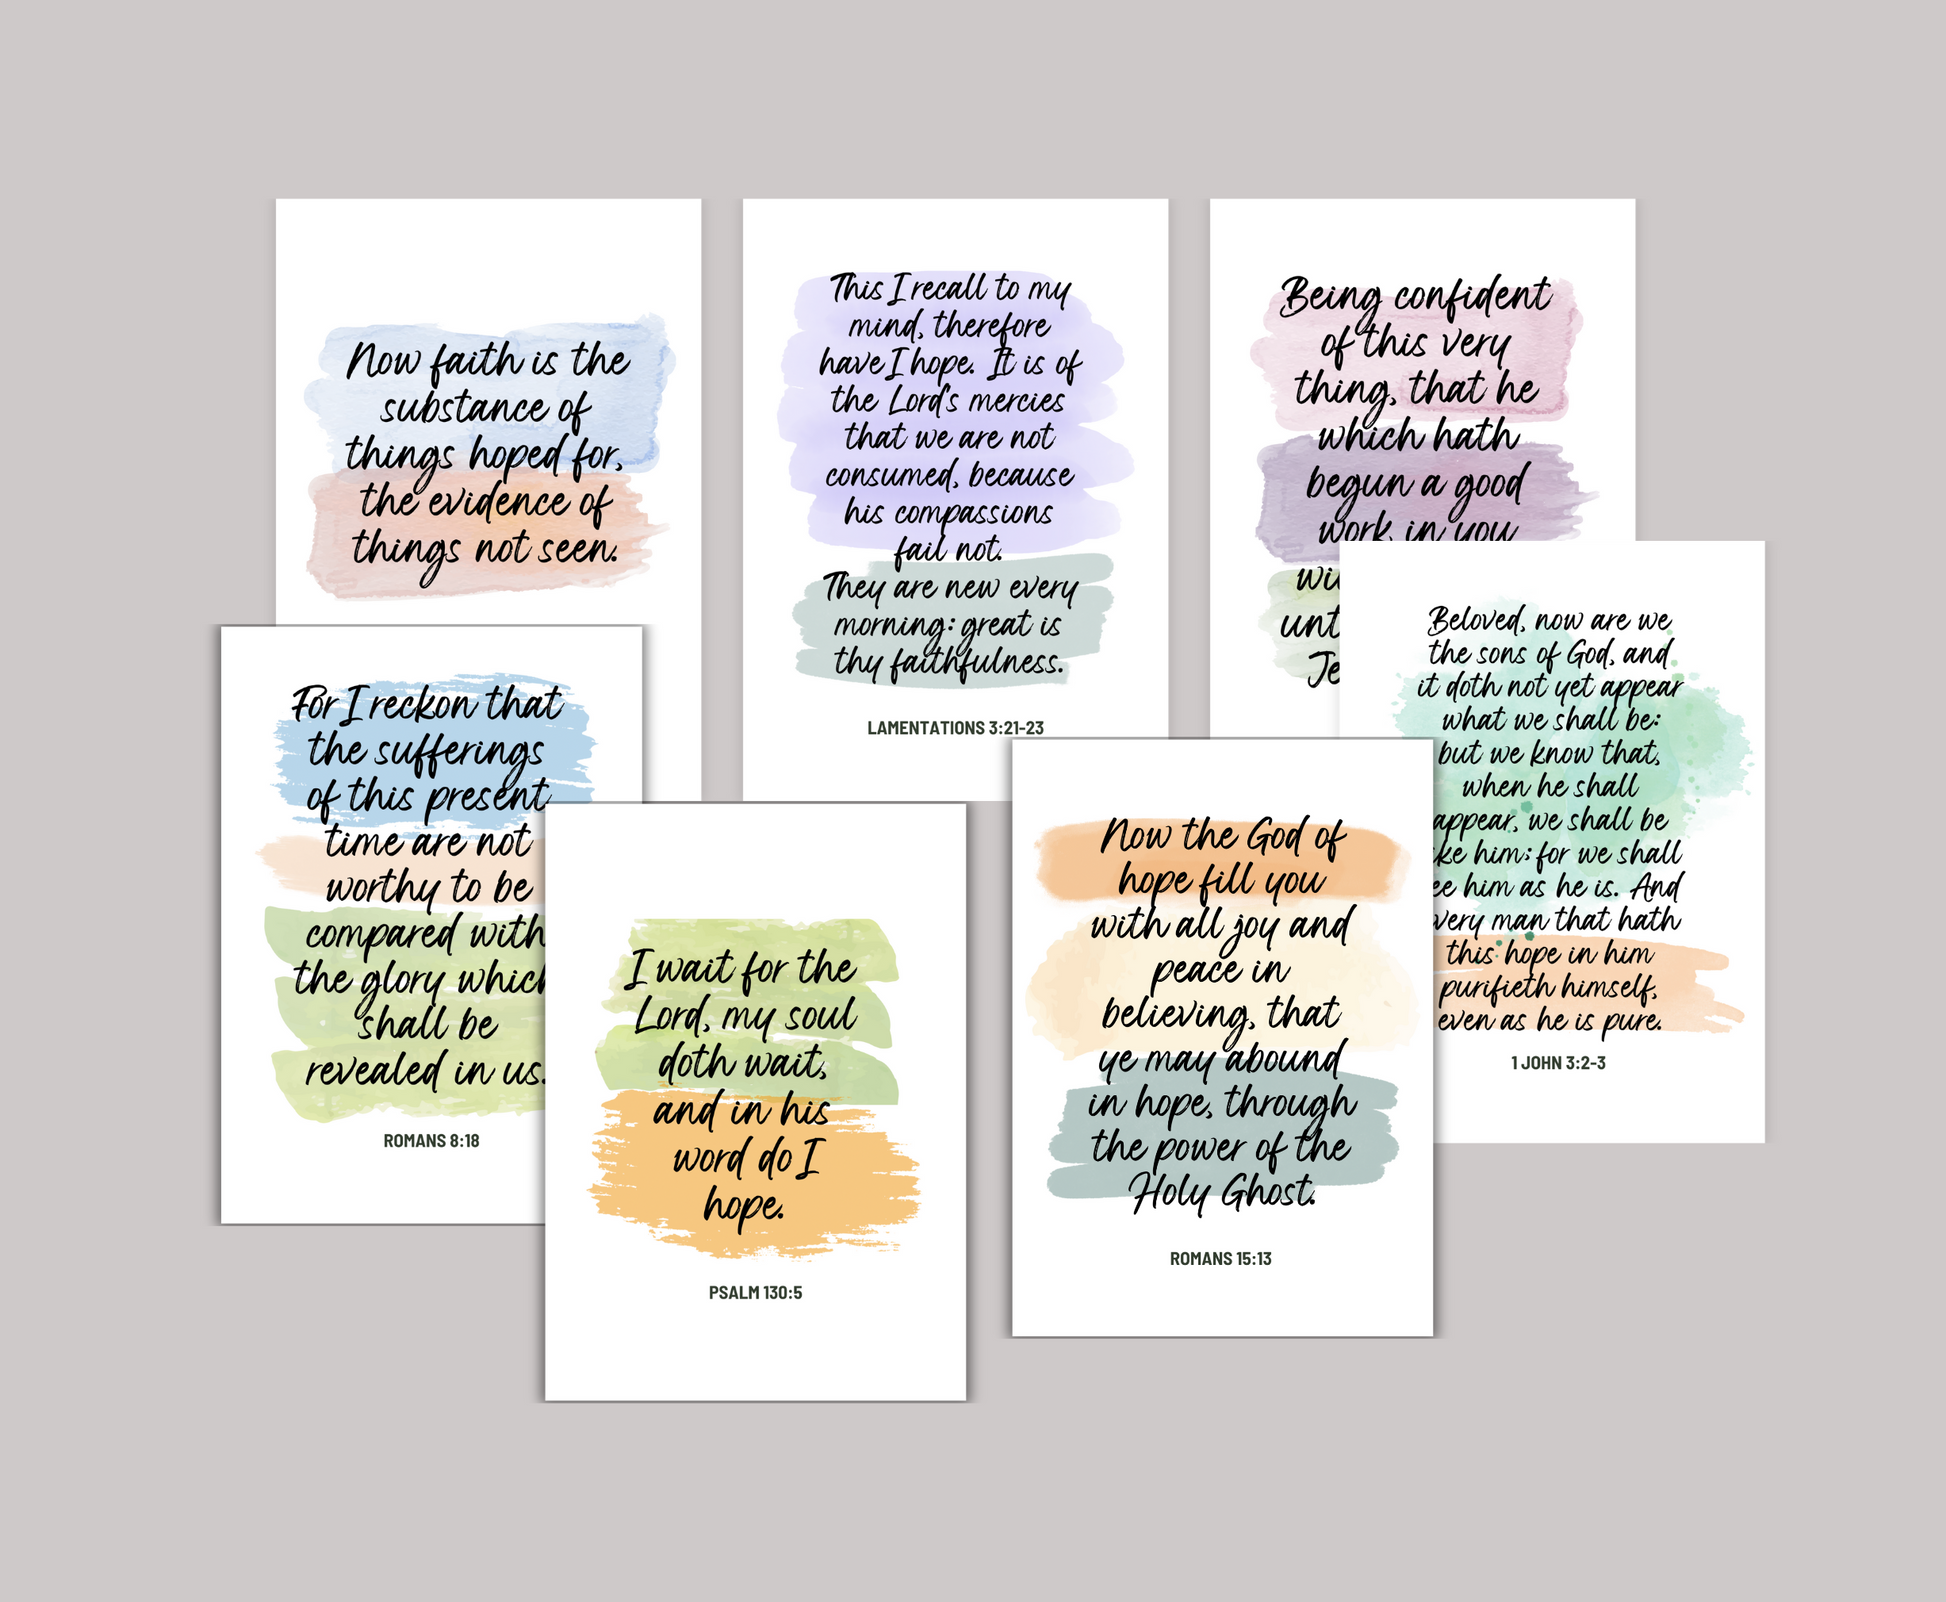 Now faith is the
substance of
things hoped for,
the evidence of
things not seen.
This I recall to my
mind, therefore
have I hope. It is of
the Lord's mercies
that we are not
consumed, because
his compassions
fail not.
They are new every
morning: great is
thy faithfulness.
LAMENTATIONS 3:21-23
Being confident
of this very
thing, that he
which hath
begun a good
work in you
Beloved, now are we
the sons of God, and
it doth not yet appear
what we shall be:
but we know that,
when he shall
appear, we shall be
him: for we shall
him as he is. And
man that hath
this hope in him
purifieth himself,
even as he is pure.
1 JOHN 3:2-3
For I reckon that
the sufferings
of this present
time are not
worthy to be
compared with
the glory which
shall be
revealed in us.
ROMANS 8:18
I wait for the
Lord, my soul
doth wait,
and in his
word do I
hope.
PSALM 130:5
Now the God of
hope fill you
with all joy and
peace in
believing, that
ye may abound
in hope, through
the power of the
Holy Ghost.
ROMANS 15:13